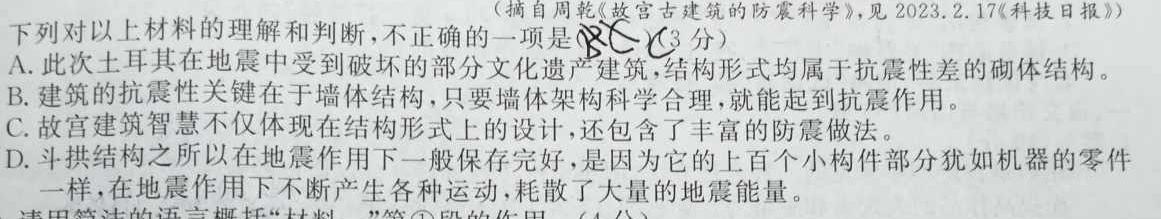 (摘自周乾《故宫古建筑的防震科学》,见 2023.2.17《科技日报》)
下列对以上材料的理解和判断,不正确的一项是( C )(3 分)
A. 此次土耳其在地震中受到破坏的部分文化遗产建筑,结构形式均属于抗震性差的砌体结构。
B. 建筑的抗震性关键在于墙体结构,只要墙体架构科学合理,就能起到抗震作用。
C. 故宫建筑智慧不仅体现在结构形式上的设计,还包含了丰富的防震做法。
D. 斗拱结构之所以在地震作用下一般保存完好,是因为它的上百个小构件部分犹如机器的零件
一样,在地震作用下不断产生各种运动,耗散了大量的地震能量。
请用简洁的语言概括“材料一”第①段的作用。(4 分)